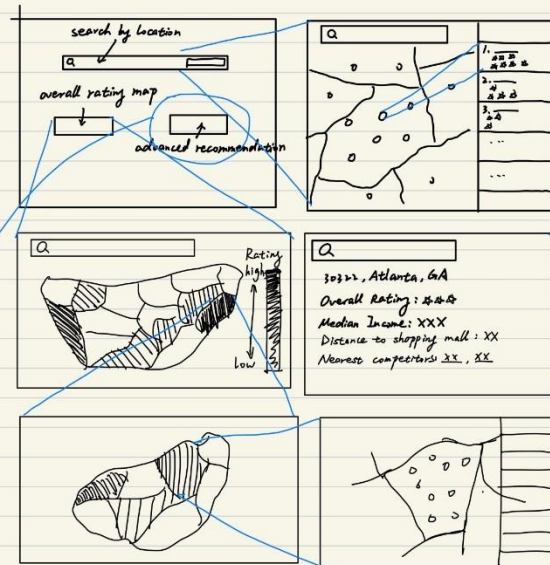 search by location
overall rating map
advanced recommendation
1.
2.
3.
...
...
Rating
high
Low
30322, Atlanta, GA
Overall Rating: ☆☆☆
Median Income: XXX
Distance to shopping mall: XX
Nearest competitors: XX, XX